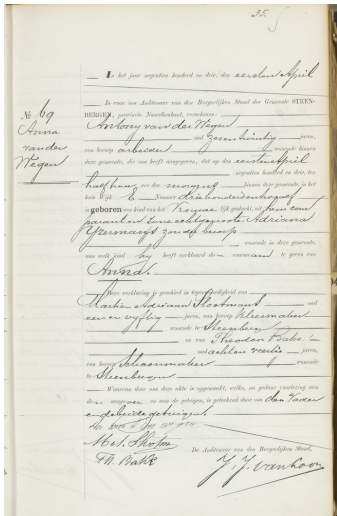 35.
In het jaar negentien honderd en drie, den eersten April
is voor ons Ambtenaar van den Burgerlijken Stand der Gemeente STEEN-
No 69
BERGEN, provincie Noordbrabant, verschenen:
Anna
Antony van der Wegen
van der
oud zesentwintig jaren,
Wegen
van beroep arbeider wonende binnen
deze gemeente, die ons heeft aangegeven, dat op den eersten April
negentien honderd en drie, ten
half twee ure des morgens binnen deze gemeente, in het
huis wijk E Nummer driehonderd
is geboren een kind van het Vrouwelijk geslacht, uit hem comparant en zijne echtgenoote Adriana
IJzermans zonder beroep
wonende in deze gemeente,
aan welk kind hij heeft verklaard de voornaam te geven van
Anna.
Deze verklaring is geschied in tegenwoordigheid van
Martien Adriaan Slootmans oud
een en vijftig jaren, van beroep kleermaker
wonende te Steenbergen
en van Theodor Bakx
oud achten veertig jaren,
van beroep Schoenmaker wonende
te Steenbergen
Waarvan door ons deze akte is opgemaakt, welke, na gedane voorlezing aan
den aangever en aan de getuigen, is geteekend door ons den Vader
en de beide getuigen
De Ambtenaar van den Burgerlijken Stand,
Th. Bakx
J. J. van Loon